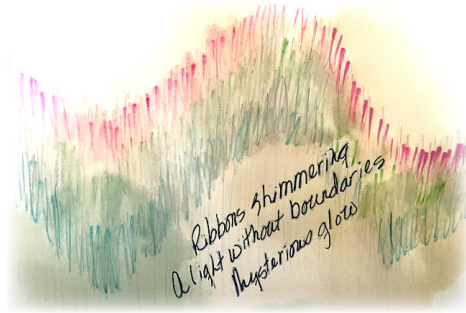 Ribbons shimmering
A light without boundaries
Mysterious glow